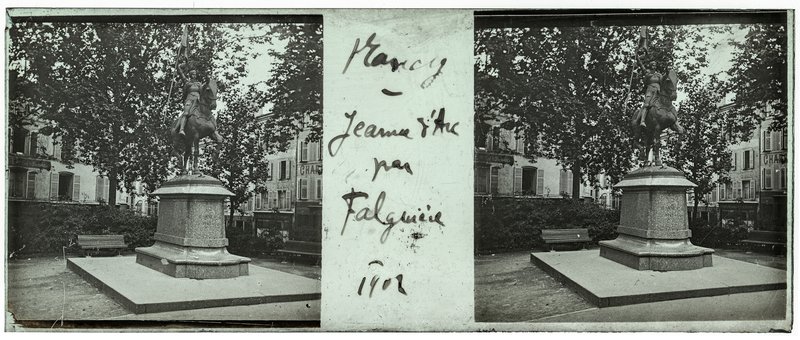 Nancy
-
Jeanne d'Arc
par
Falguière
1902
CHA
CHAC